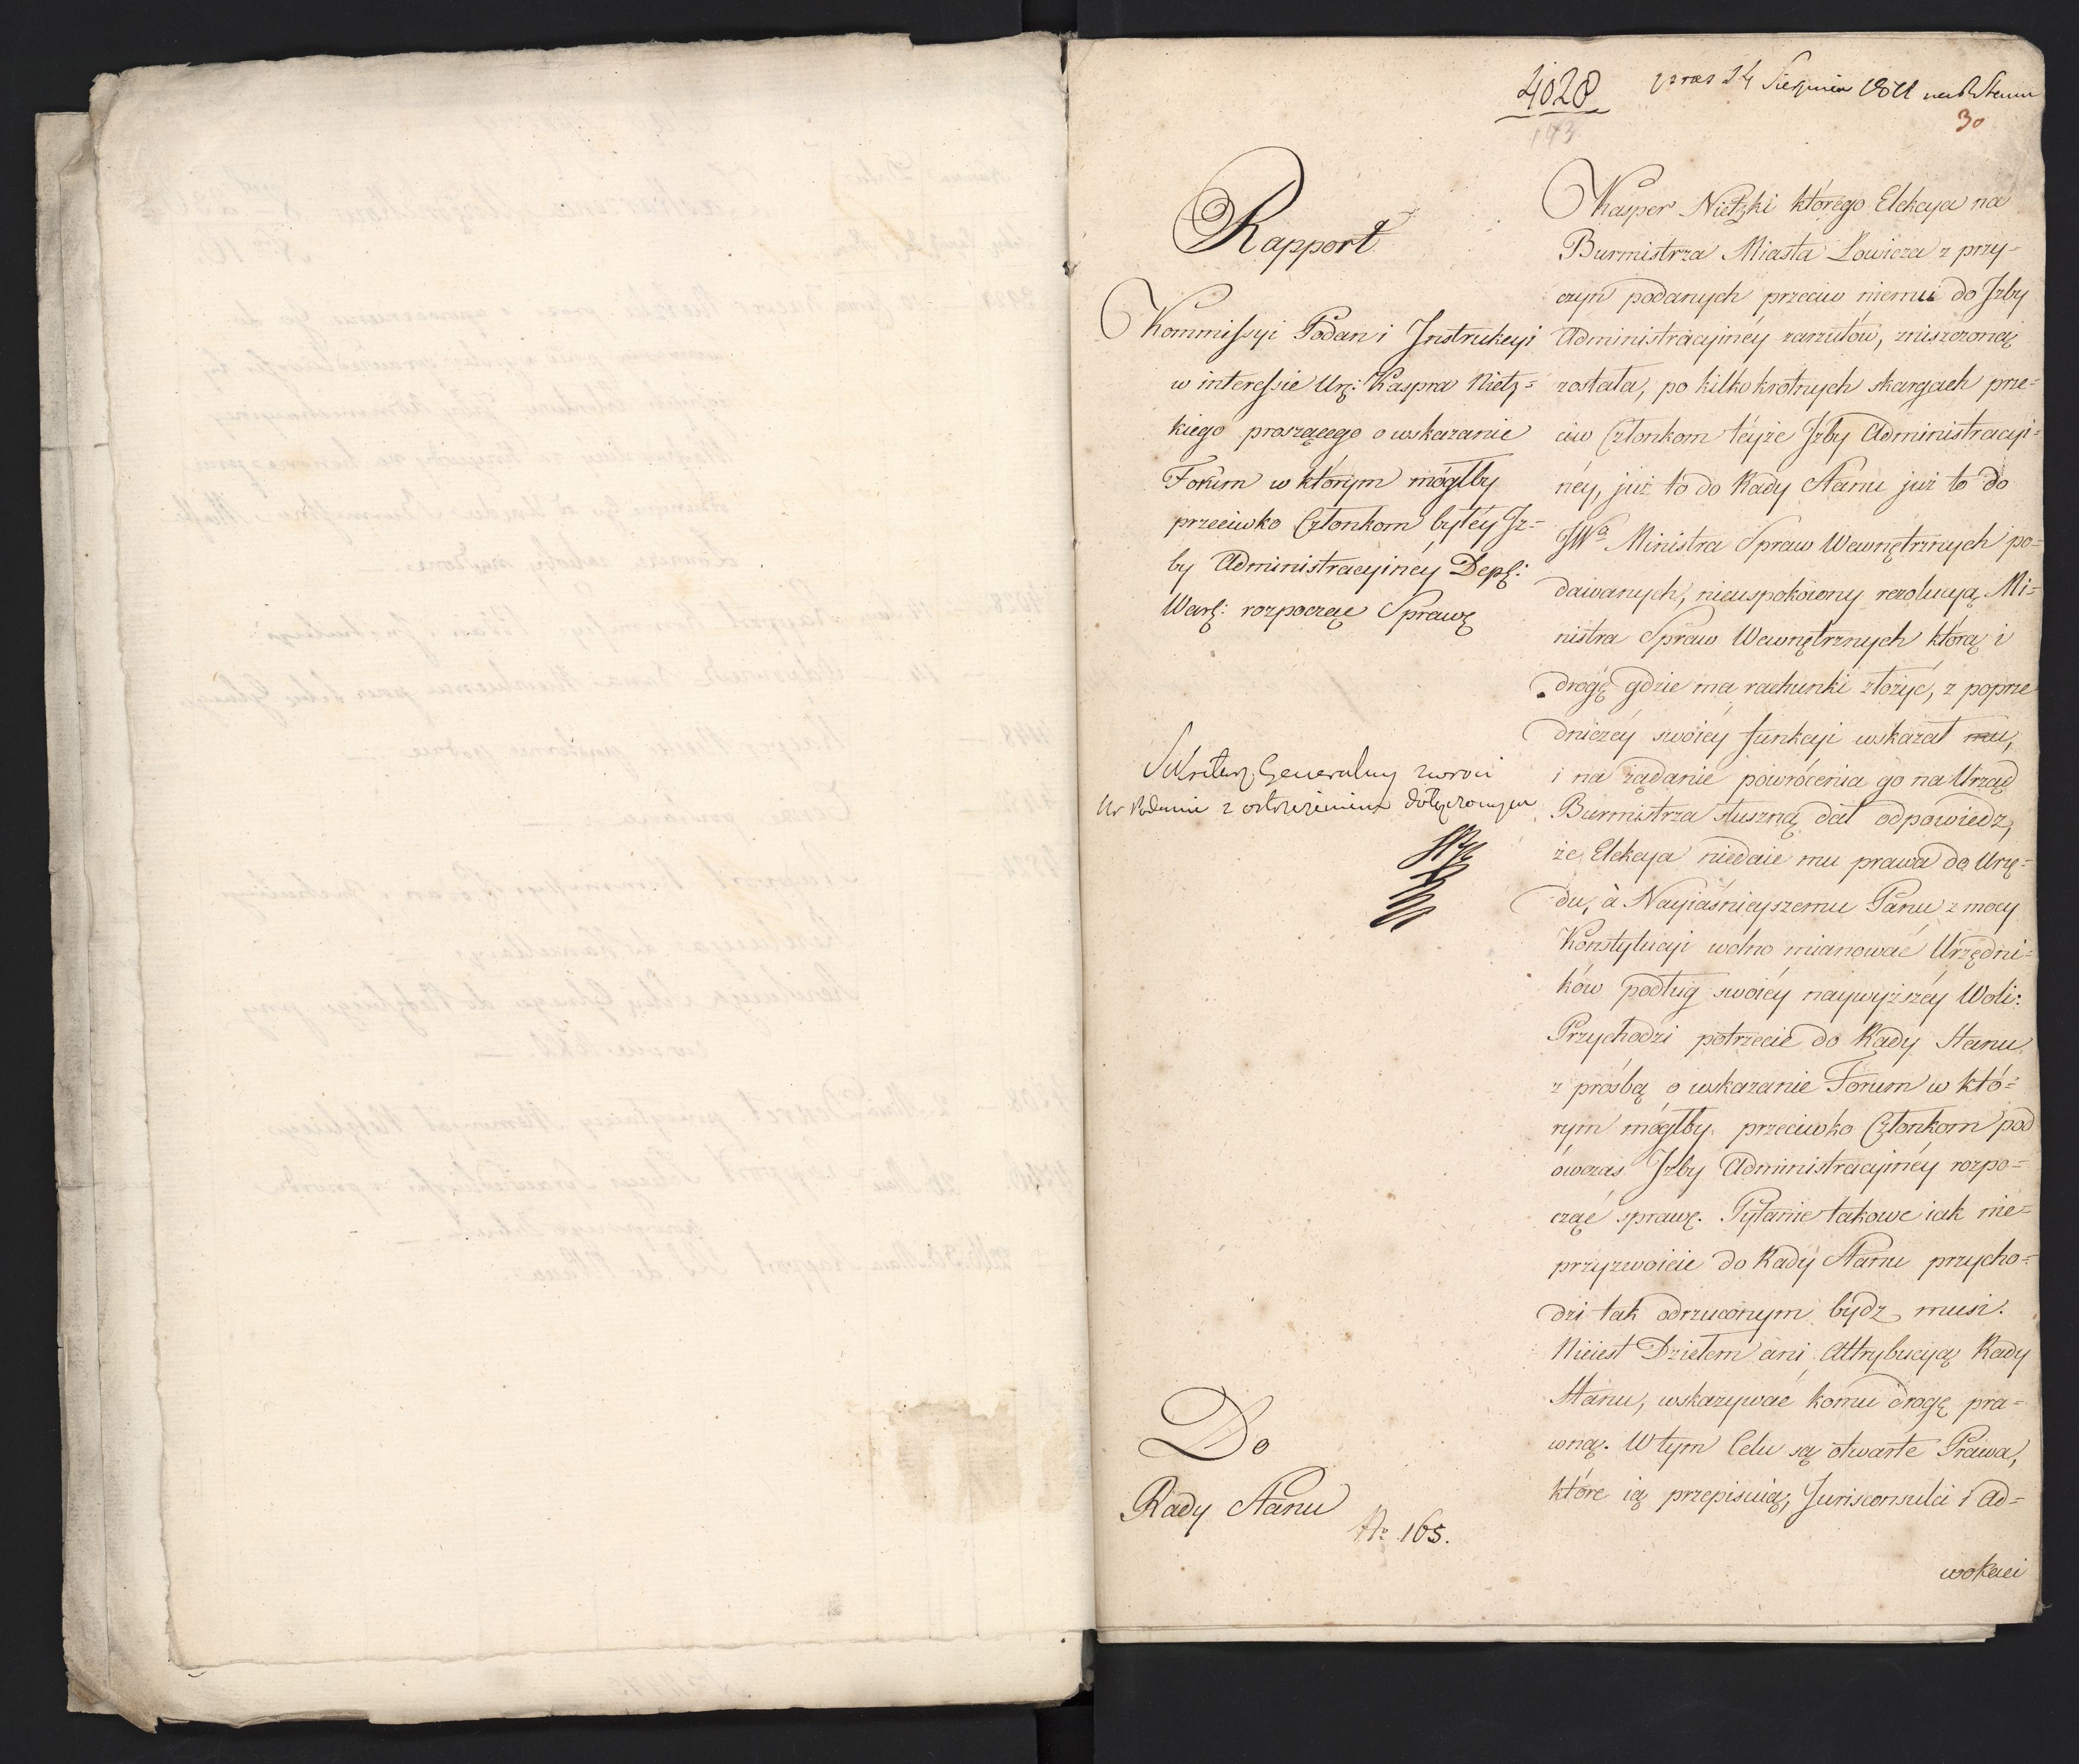 4028
24 Sierpnia 1811
30
143
Rapport
Kommissyi Podan i Instrukcyi
w interessie Urz: Kaspra Nietz=
kiego proszącego o wskazanie
Forum w którym mógłby
przeciwko Członkom byłéy Iz=
by Administracyinéy Dep:
Warß: rozpocząc Sprawę
Sekretarz Generalny zwróci
podanie z ostrzeżeniem dołączonym
Do
Rady Stanu
No 165.
Kasper Nietzki którego Elekcya na
Burmistrza Miasta Łowicza z przy=
czyn podanych przeciw niemu do Izby
Administracyinéy zarzutów, zniszczoną
została, po kilkokrotnych skargach prze=
ciw Członkom téyże Izby Administracyi=
néy, już to do Rady Stanu już to do
JWo Ministra Spraw Wewnętrznych po=
dawanych, nieuspokoiony rezolucyą Mi=
nistra Spraw Wewnętrznych którą i
drogę gdzie ma rachunki złożyć, z poprze
dniczéy swoiéy funkcyi wskazał mu,
i na żądanie powrócenia go na Urząd
Burmistrza słuszną dał odpowiedz,
że Elekcya niedaie mu prawa do Urzę=
du, à Nayiaśnieyszemu Panu z mocy
Konstytucyi wolno mianować Urzędni=
ków podług swoiéy naywyższéy Woli:
Przychodzi potrzecie do Rady Stanu
z prośbą o wskazanie Forum w któ=
rym mógłby przeciwko Członkom pod
ówczas Izby Administracyinéy rozpo=
cząć sprawę. Pytanie takowe iak nie=
przyzwoicie do Rady Stanu przycho=
dzi tak odrzuconym bydz musi.
Nieiest Dziełem ani Attrybucyą Rady
Stanu, wskazywać komu drogę pra=
wną. W tym Celu są otwarte Prawa,
które ią przepisuią, Jurisconsulci i Ad=
wokaci